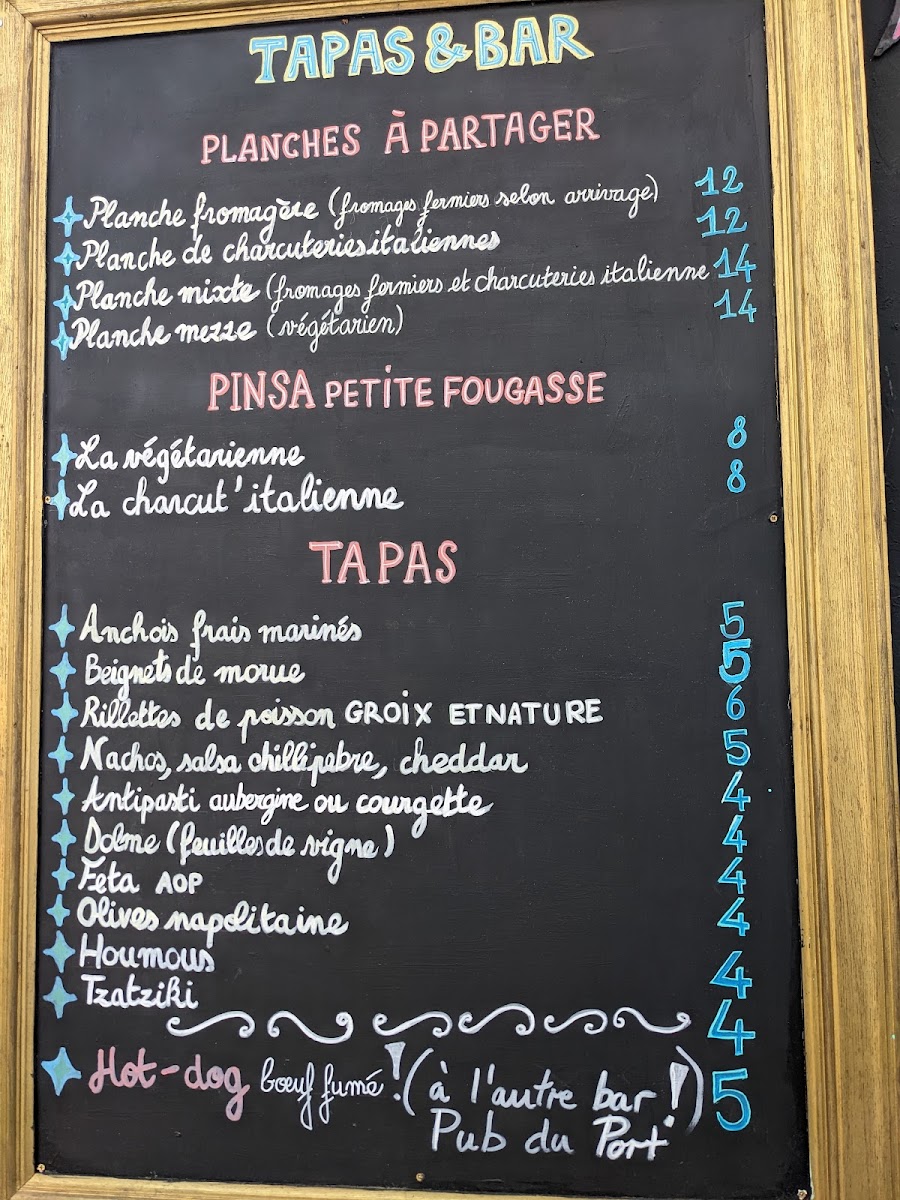 TAPAS & BAR
PLANCHES À PARTAGER
Planche fromagère (fromages fermiers selon arrivage) 12
Planche de charcuteries italiennes 12
Planche mixte (fromages fermiers et charcuteries italienne 14
Planche mezze (végétarien) 14
PINSA PETITE FOUGASSE
La végétarienne 8
La charcut'italienne 8
TAPAS
Anchois frais marinés 5
Beignets de morue 5
Rillettes de poisson GROIX ET NATURE 6
Nachos, salsa chilli pebre, cheddar 5
Antipasti aubergine ou courgette 4
Dolme (feuilles de vigne) 4
Feta AOP 4
Olives napolitaine 4
Houmous 4
Tzatziki 4
Hot-dog bœuf fumé! (à l'autre bar!) 5
Pub du Port